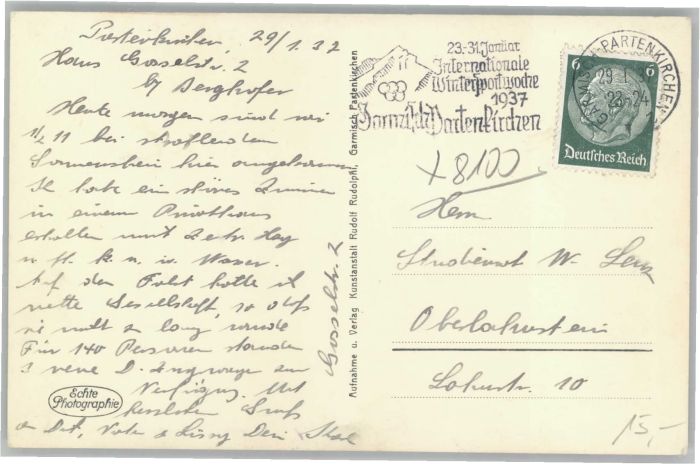 Partenkirchen, 29/1. 37
Haus Gasselstr. 2
b/ Berghofer
Heute morgen sind wir
1/2 11 bei strahlendem
Sonnenschein hier angekommen
habe ein schönes Zimmer
in einem Privathaus
erhalten mit Zentr. Hzg
u. fl. k. u. w. Wasser.
Auf der Fahrt hatte ich
nette Gesellschaft, so daß
nicht so lang wurde
Für 140 Personen standen
3 neue D-Zugwagen zur
Verfügung. Mit
herzlichem Gruß
Dein
Echte
Photographie
Gasselstr. 2
Aufnahme u. Verlag Kunstanstalt Rudolf Rudolphi, Garmisch Partenkirchen
23.-31. Januar
Internationale
Wintersportwoche
1937
Garmisch-Partenkirchen
GARMISCH-PARTENKIRCHEN
29.1.37
22-24
6 6
Deutsches Reich
x 8100
Herrn
Studienrat W. Lenz
Oberlahnstein
Lahnstr. 10
15,-